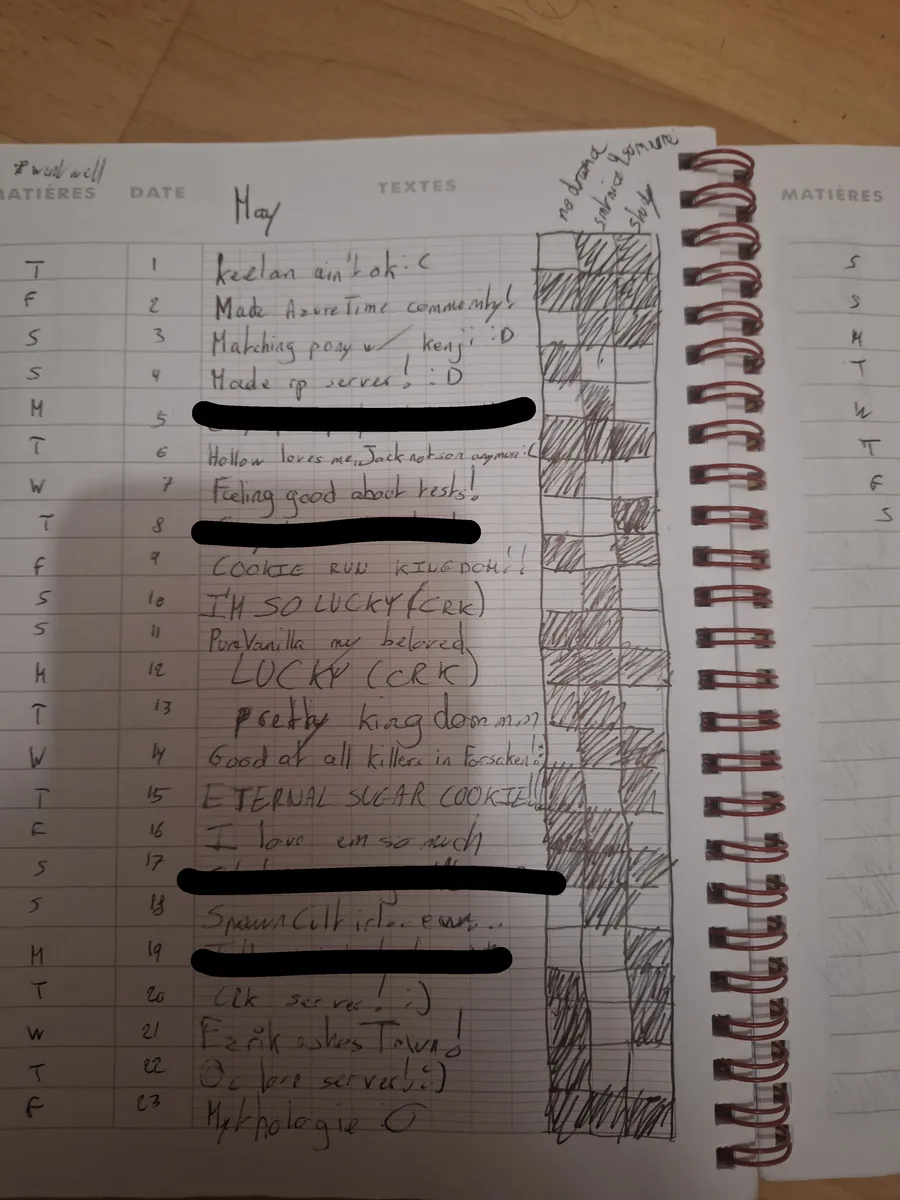 MATIÈRES DATE TEXTES MATIÈRES
May
no drama
study
T 1 keelan ain't ok :C S
F 2 Made AzureTime community! S
S 3 Matching pony w/ kenji :D M
S 4 Made rp server! :D T
M 5 W
T 6 Hollow loves me, Jack not son anymore :C T
W 7 Feeling good about tests! F
T 8 S
F 9 COOKIE RUN KINGDOM!!
S 10 I'M SO LUCKY (CRK)
S 11 PureVanilla my beloved
M 12 LUCKY (CRK)
T 13 pretty kingdommm
W 14 Good at all killers in Forsaken!
T 15 ETERNAL SUGAR COOKIE!!
F 16 I love em so much
S 17
S 18 SpawnCult
M 19
T 20 CRK server! :)
W 21
T 22 Oc lore server! :)
F 23 Mythologie :O